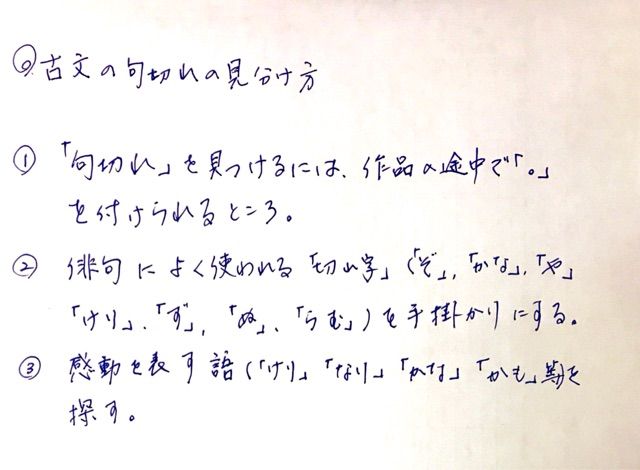 ◎古文の句切れの見分け方
① 「句切れ」を見つけるには、作品の途中で「。」
を付けられるところ。
② 俳句によく使われる「切れ字」(「ぞ」、「かな」、「や」
「けり」、「ず」、「ぬ」、「らむ」)を手掛かりにする。
③ 感動を表す語(「けり」「なり」「かな」「かも」等)を
探す。